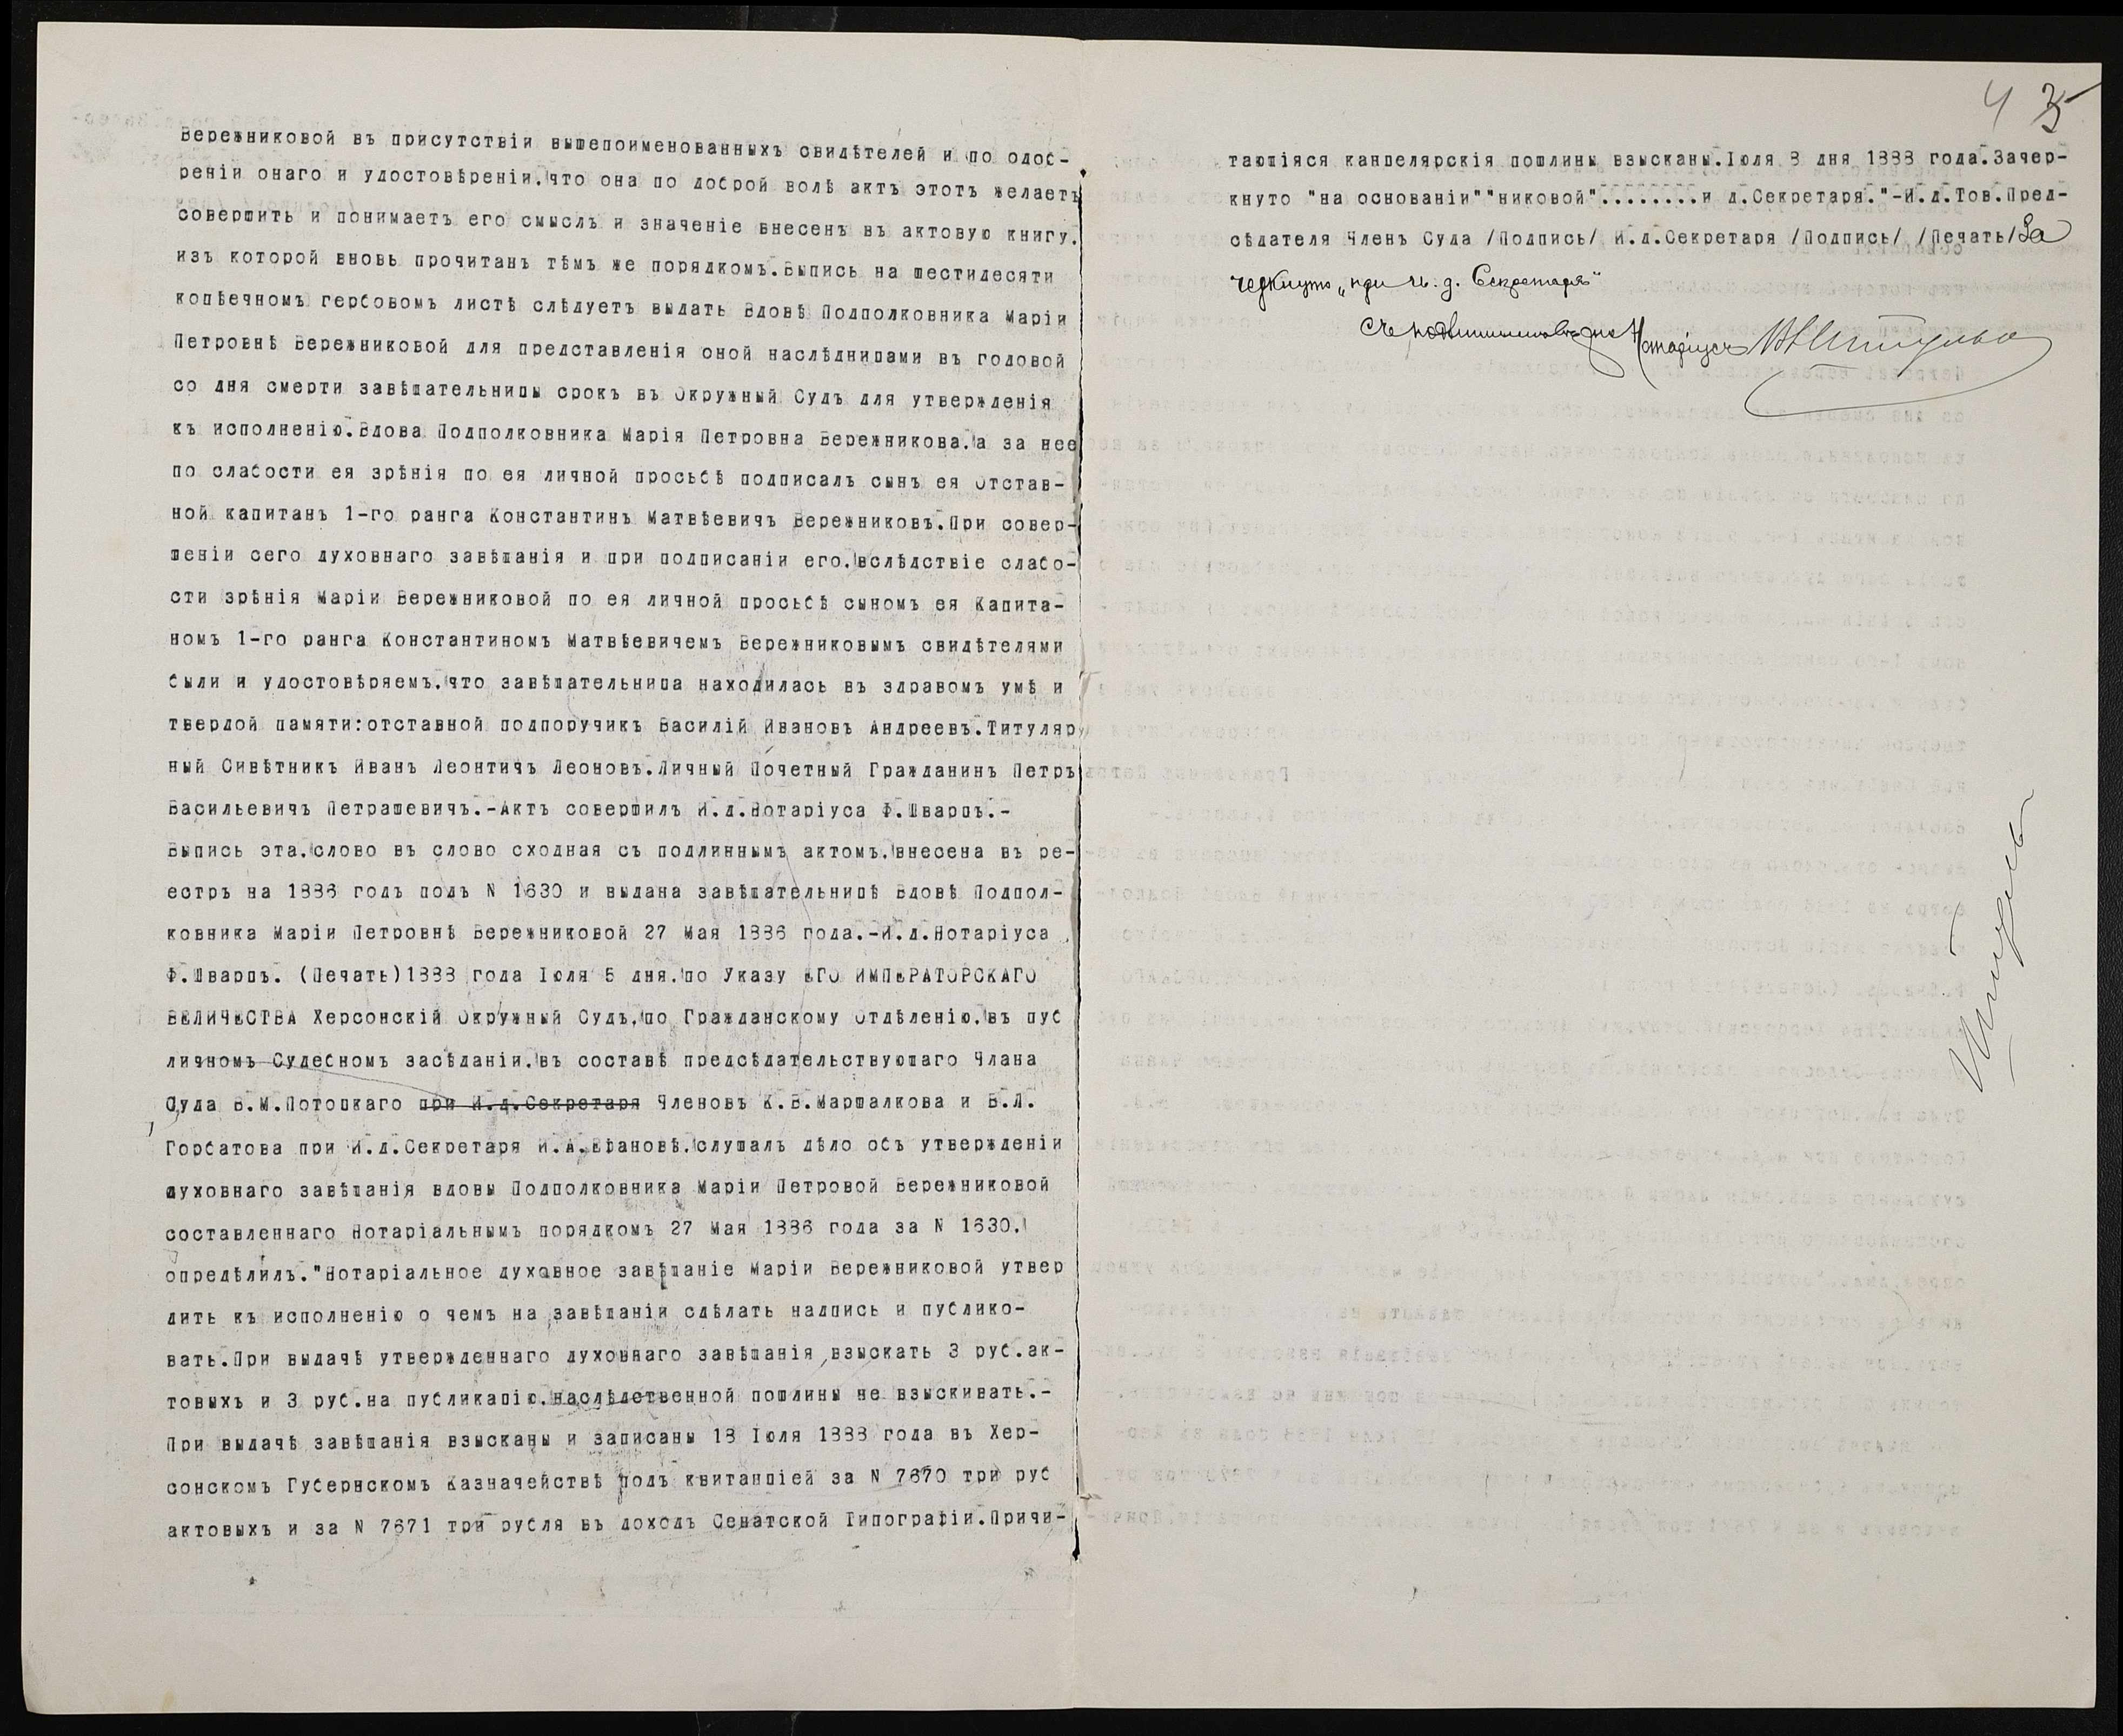 Бережниковой въ присутствіи вышепоименованныхъ свидѣтелей и по одоб-
реніи онаго и удостовѣреніи, что она по доброй волѣ актъ этотъ желаетъ
совершить и понимаетъ его смыслъ и значеніе внесенъ въ актовую книгу,
изъ которой вновь прочитанъ тѣмъ же порядкомъ.Выпись на шестидесяти
копѣечномъ гербовомъ листѣ слѣдуетъ выдать Вдовѣ Подполковника Маріи
Петровнѣ Бережниковой для представленія оной наслѣдницами въ годовой
со дня смерти завѣщательницы срокъ въ Окружный Судъ для утвержденія
къ исполненію.Вдова Подполковника Марія Петровна Бережникова, а за нее
по слабости ея зрѣнія по ея личной просьбѣ подписалъ сынъ ея Отстав-
ной капитанъ 1-го ранга Константинъ Матвѣевичъ Бережниковъ.При совер-
шеніи сего духовнаго завѣщанія и при подписаніи его, вслѣдствіе слабо-
сти зрѣнія Маріи Бережниковой по ея личной просьбѣ сыномъ ея Капита-
номъ 1-го ранга Константиномъ Матвѣевичемъ Бережниковымъ свидѣтелями
были и удостовѣряемъ, что завѣщательница находилась въ здравомъ умѣ и
твердой памяти:отставной подпоручикъ Василій Ивановъ Андреевъ.Титуляр
ный Сивѣтникъ Иванъ Леонтичъ Леоновъ.Личный Почетный Гражданинъ Петръ
Васильевичъ Петрашевичъ.-Актъ совершилъ И.д.Нотаріуса Ф.Шварцъ.-
Выпись эта, слово въ слово сходная съ подлиннымъ актомъ, внесена въ ре-
естръ на 1886 годъ подъ N 1630 и выдана завѣщательницѣ Вдовѣ Подпол-
ковника Маріи Петровнѣ Бережниковой 27 Мая 1886 года.-И.д.Нотаріуса
Ф.Шварцъ. (Печать)1888 года Іюля 5 дня, по Указу ЕГО ИМПЕРАТОРСКАГО
ВЕЛИЧЕСТВА Херсонскій Окружный Судъ, по Гражданскому Отдѣленію, въ пуб
личномъ Судебномъ засѣданіи, въ составѣ предсѣдательствующаго Члана
Суда В.М.Потоцкаго при И.д.Секретаря Членовъ К.В.Маршалкова и В.Л.
Горбатова при И.д.Секретаря И.А. слушалъ дѣло объ утвержденіи
духовнаго завѣщанія вдовы Подполковника Маріи Петровой Бережниковой
составленнаго Нотаріальнымъ порядкомъ 27 Мая 1886 года за N 1630,
опредѣлилъ."Нотаріальное духовное завѣщаніе Маріи Бережниковой утвер
дить къ исполненію о чемъ на завѣщаніи сдѣлать надпись и публико-
вать.При выдачѣ утвержденнаго духовнаго завѣщанія взыскать 3 руб.ак-
товыхъ и 3 руб.на публикацію, наслѣдственной пошлины не взыскивать.-
При выдачѣ завѣщанія взысканы и записаны 18 Іюля 1888 года въ Хер-
сонскомъ Губернскомъ Казначействѣ подъ квитанціей за N 7670 три руб
актовыхъ и за N 7671 три рубля въ доходъ Сенатской Типографіи.Причи-
4 35
тающіяся канцелярскія пошлины взысканы.Іюля 8 дня 1888 года.Зачер-
кнуто "на основаніи""никовой"........и д.Секретаря."-И.д.Тов.Пред-
сѣдателя Членъ Суда /Подпись/ И.д.Секретаря /Подпись/ /Печать/За
черкнуто „при И. д. Секретаря"
Нотаріусъ